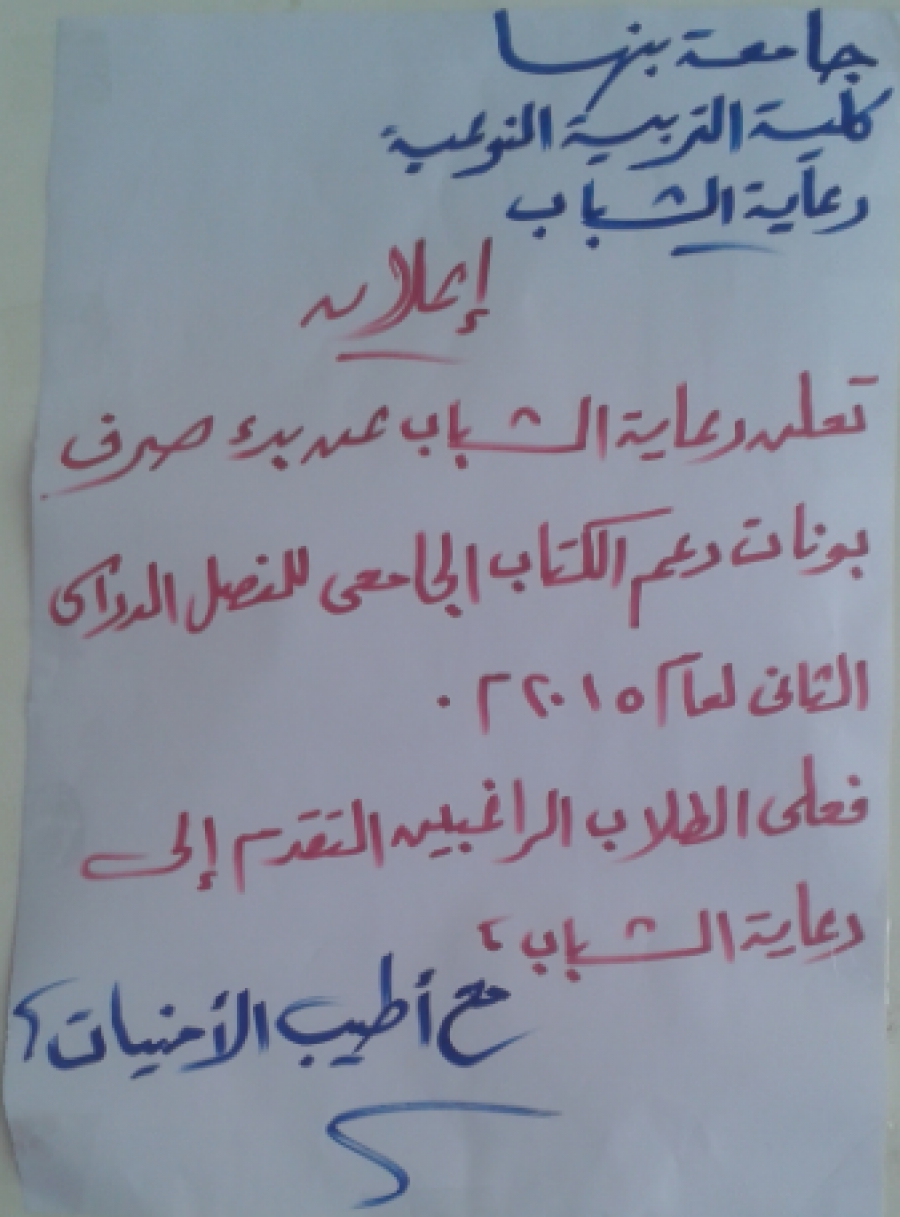 جامعة بنها
كلية التربية النوعية
رعاية الشباب
إعلان
تعلن رعاية الشباب عن بدء صرف
بونات دعم الكتاب الجامعى للفصل الدراسى
الثانى لعام ٢٠١٥ م .
فعلى الطلاب الراغبين التقدم إلى
رعاية الشباب ،
مع أطيب الأمنيات ؟